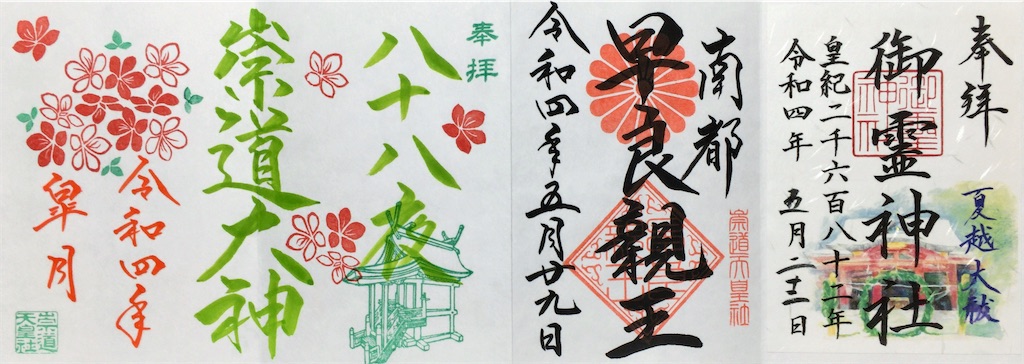 奉拝
八十八夜
崇道大神
令和四年
皐月
崇道
天皇社
南都
早良親王
崇道天皇社
令和四年五月廿九日
奉拝
夏越大祓
御霊神社
御霊
神社
皇紀二千六百八十二年
令和四年 五月二十二日